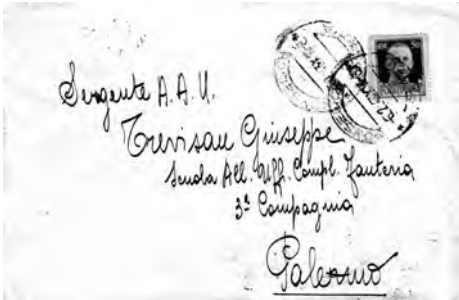 Sergente A.A.U.
Trevisan Giuseppe
Scuola All. Uff. Compl. Fanteria
3ª Compagnia
Palermo